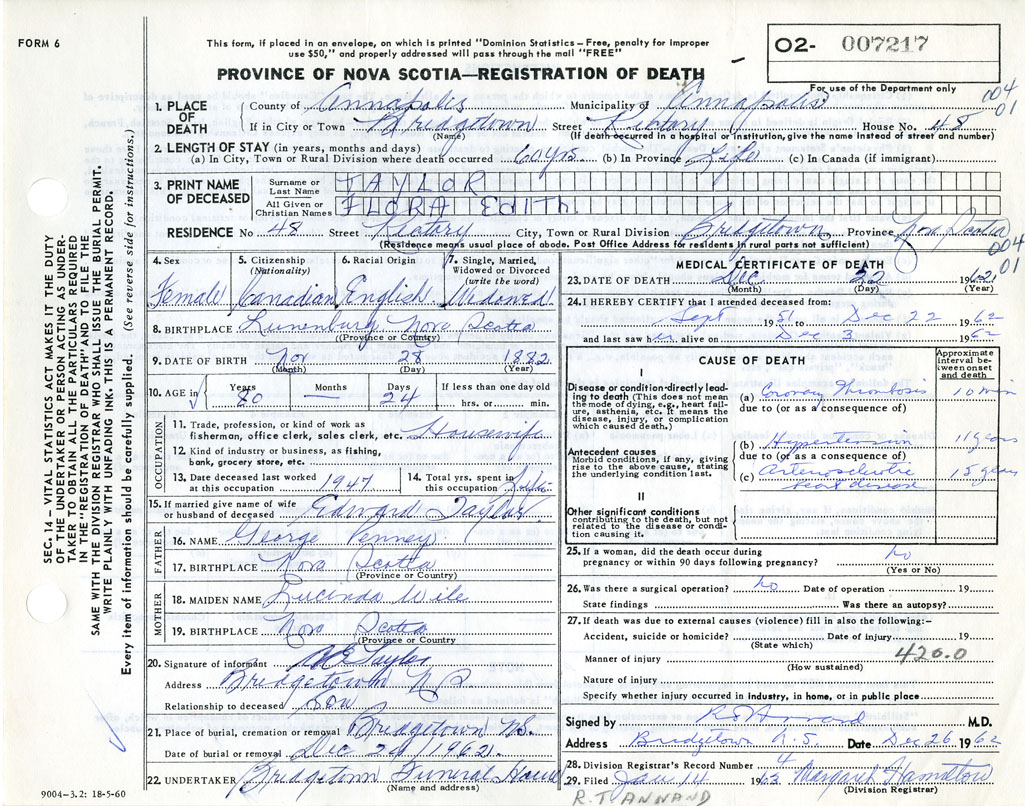 FORM 6
This form, if placed in an envelope, on which is printed "Dominion Statistics – Free, penalty for improper
use $50," and properly addressed will pass through the mail "FREE"
02- 007217
PROVINCE OF NOVA SCOTIA—REGISTRATION OF DEATH
For use of the Department only
004
01
1. PLACE OF DEATH
County of Annapolis Municipality of Annapolis
If in City or Town Bridgetown Street Rectory House No. 48
(Name) (If death occurred in a hospital or institution, give the name instead of street and number)
2. LENGTH OF STAY (in years, months and days)
(a) In City, Town or Rural Division where death occurred 60 yrs. (b) In Province Life (c) In Canada (if immigrant)
3. PRINT NAME OF DECEASED
Surname or Last Name TAYLOR
All Given or Christian Names FLORA EDITH
RESIDENCE No 48 Street Rectory City, Town or Rural Division Bridgetown Province Nova Scotia
(Residence means usual place of abode. Post Office Address for residents in rural parts not sufficient)
004
01
4. Sex
Female
5. Citizenship (Nationality)
Canadian
6. Racial Origin
English
7. Single, Married, Widowed or Divorced (write the word)
Widowed
8. BIRTHPLACE Lunenburg Nova Scotia
(Province or County)
9. DATE OF BIRTH Nov 28 1882
(Month) (Day) (Year)
10. AGE in
Years Months Days If less than one day old
80 — 24 hrs. or min.
OCCUPATION
11. Trade, profession, or kind of work as
fisherman, office clerk, sales clerk, etc. Housewife
12. Kind of industry or business, as fishing,
bank, grocery store, etc.
13. Date deceased last worked at this occupation 1947
14. Total yrs. spent in this occupation Life
15. If married give name of wife
or husband of deceased Edward Taylor
FATHER
16. NAME George Venney
17. BIRTHPLACE Nova Scotia
(Province or Country)
MOTHER
18. MAIDEN NAME Lucinda Wile
19. BIRTHPLACE Nova Scotia
(Province or Country
20. Signature of informant Taylor
Address Bridgetown N.S.
Relationship to deceased Son
21. Place of burial, cremation or removal Bridgetown N.S.
Date of burial or removal Dec 24 1962
22. UNDERTAKER Bridgetown Funeral Home
(Name and address)
9004–3.2: 18-5-60
MEDICAL CERTIFICATE OF DEATH
23. DATE OF DEATH Dec 22 1962
(Month) (Day) (Year)
24. I HEREBY CERTIFY that I attended deceased from:
Sept 1951 to Dec 22 1962
and last saw her alive on Dec 3 1962
CAUSE OF DEATH
Approximate interval between onset and death
I
Disease or condition directly leading to death (This does not mean the mode of dying, e.g., heart failure, asthenia, etc. It means the disease, injury, or complication which caused death.)
(a) Coronary Thrombosis 10 min
due to (or as a consequence of)
Antecedent causes
Morbid conditions, if any, giving rise to the above cause, stating the underlying condition last.
(b) Hypertension 11 years
due to (or as a consequence of)
(c) Arteriosclerotic 15 years
heart disease
II
Other significant conditions
contributing to the death, but not related to the disease or condition causing it.
25. If a woman, did the death occur during
pregnancy or within 90 days following pregnancy? No
(Yes or No)
26. Was there a surgical operation? No Date of operation 19
State findings Was there an autopsy?
27. If death was due to external causes (violence) fill in also the following:–
Accident, suicide or homicide? Date of injury 19
(State which)
Manner of injury 420.0
(How sustained)
Nature of injury
Specify whether injury occurred in industry, in home, or in public place
Signed by R S Annand M.D.
Address Bridgetown N.S. Date Dec 26 1962
28. Division Registrar's Record Number 4
29. Filed Jan 14 1963 Margaret Hamilton
(Division Registrar)
R.T ANNAND
SEC. 14 – VITAL STATISTICS ACT MAKES IT THE DUTY
OF THE UNDERTAKER OR PERSON ACTING AS UNDER-
TAKER TO OBTAIN ALL THE PARTICULARS REQUIRED
IN THE "REGISTRATION OF DEATH" AND TO FILE THE
SAME WITH THE DIVISION REGISTRAR WHO SHALL ISSUE THE BURIAL PERMIT.
WRITE PLAINLY WITH UNFADING INK. THIS IS A PERMANENT RECORD.
Every item of information should be carefully supplied. (See reverse side for instructions.)